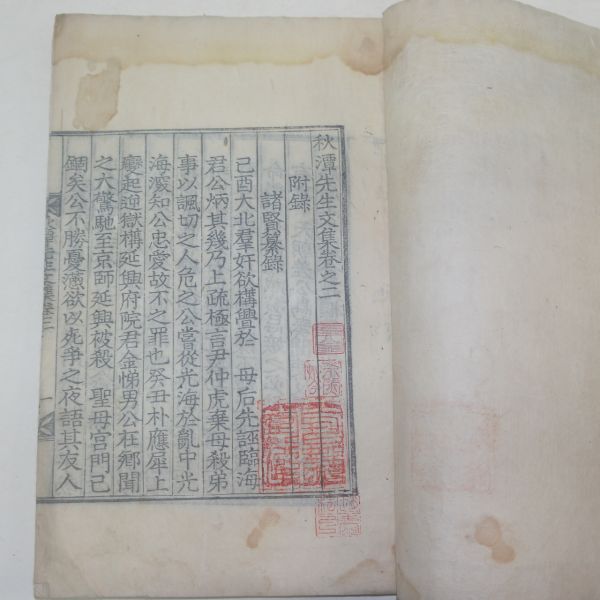 秋潭先生文集卷之二
附錄
諸賢纂錄
己酉大北羣奸欲構釁於 母后先誣臨海
君公炳其幾乃上疏極言尹仲虎棄母殺弟
事以諷切之人危之公嘗從光海於亂中光
海深知公忠愛故不之罪也癸丑朴應犀上
變起逆獄構延興府院君金悌男公在鄕聞
之大驚馳至京師延興被殺 聖母宮門已
錮矣公不勝憂懣欲以死爭之夜語其友人